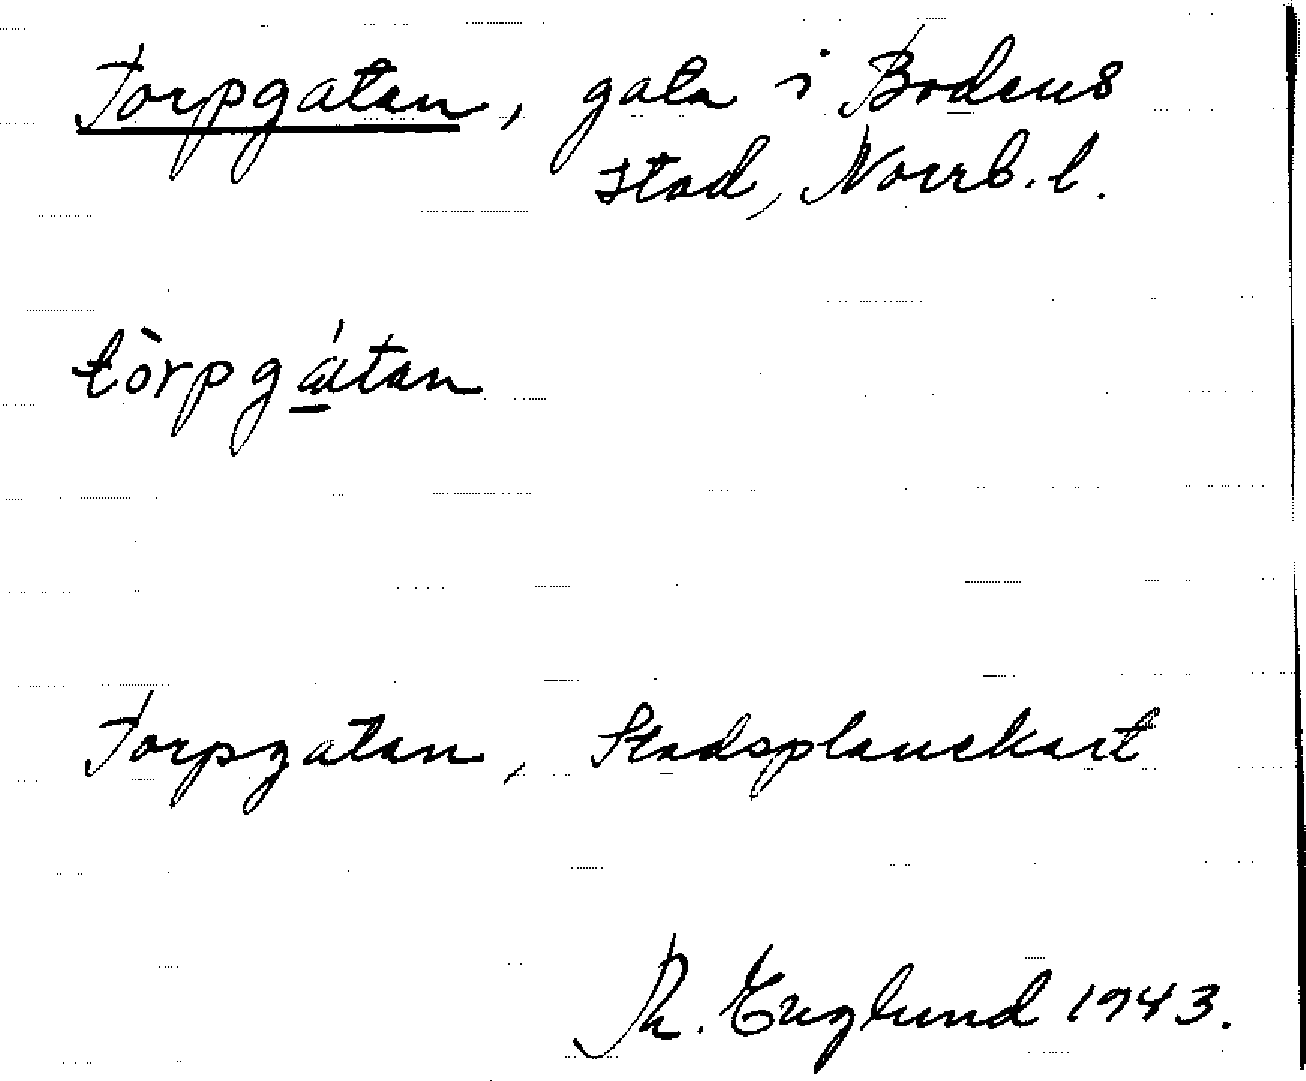 Torpgatan, gata i Bodens
stad, Norrb. l.
tòrpgátan
Torpgatan, Stadsplanekart
R. Englund 1943.